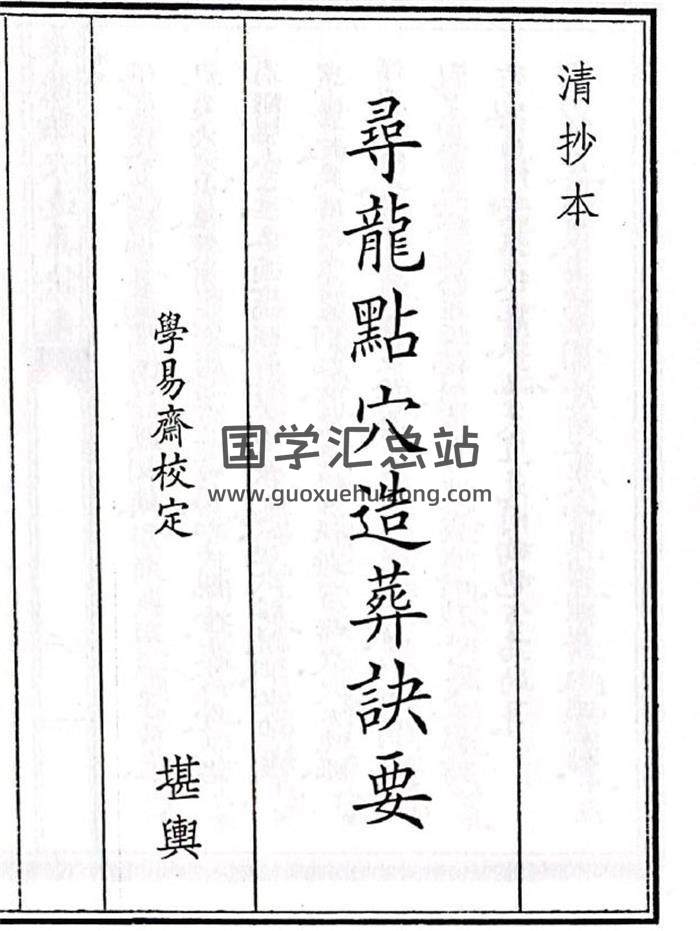 清抄本
尋龍點穴造葬訣要
學易齋校定
堪輿
国学汇总站
www.guoxuehuizong.com